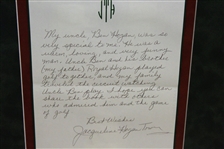 JHT
My uncle, Ben Hogan, was so
very special to me. He was a
warm, loving, and very funny
man. Uncle Ben and his brother
(my father), Royal Hogan played
golf together, and my family
loved to walk around watching
Uncle Ben play. I hope you can
share the book with others
who admired him and the game
of golf.
Best Wishes
Jacqueline Hogan Towery